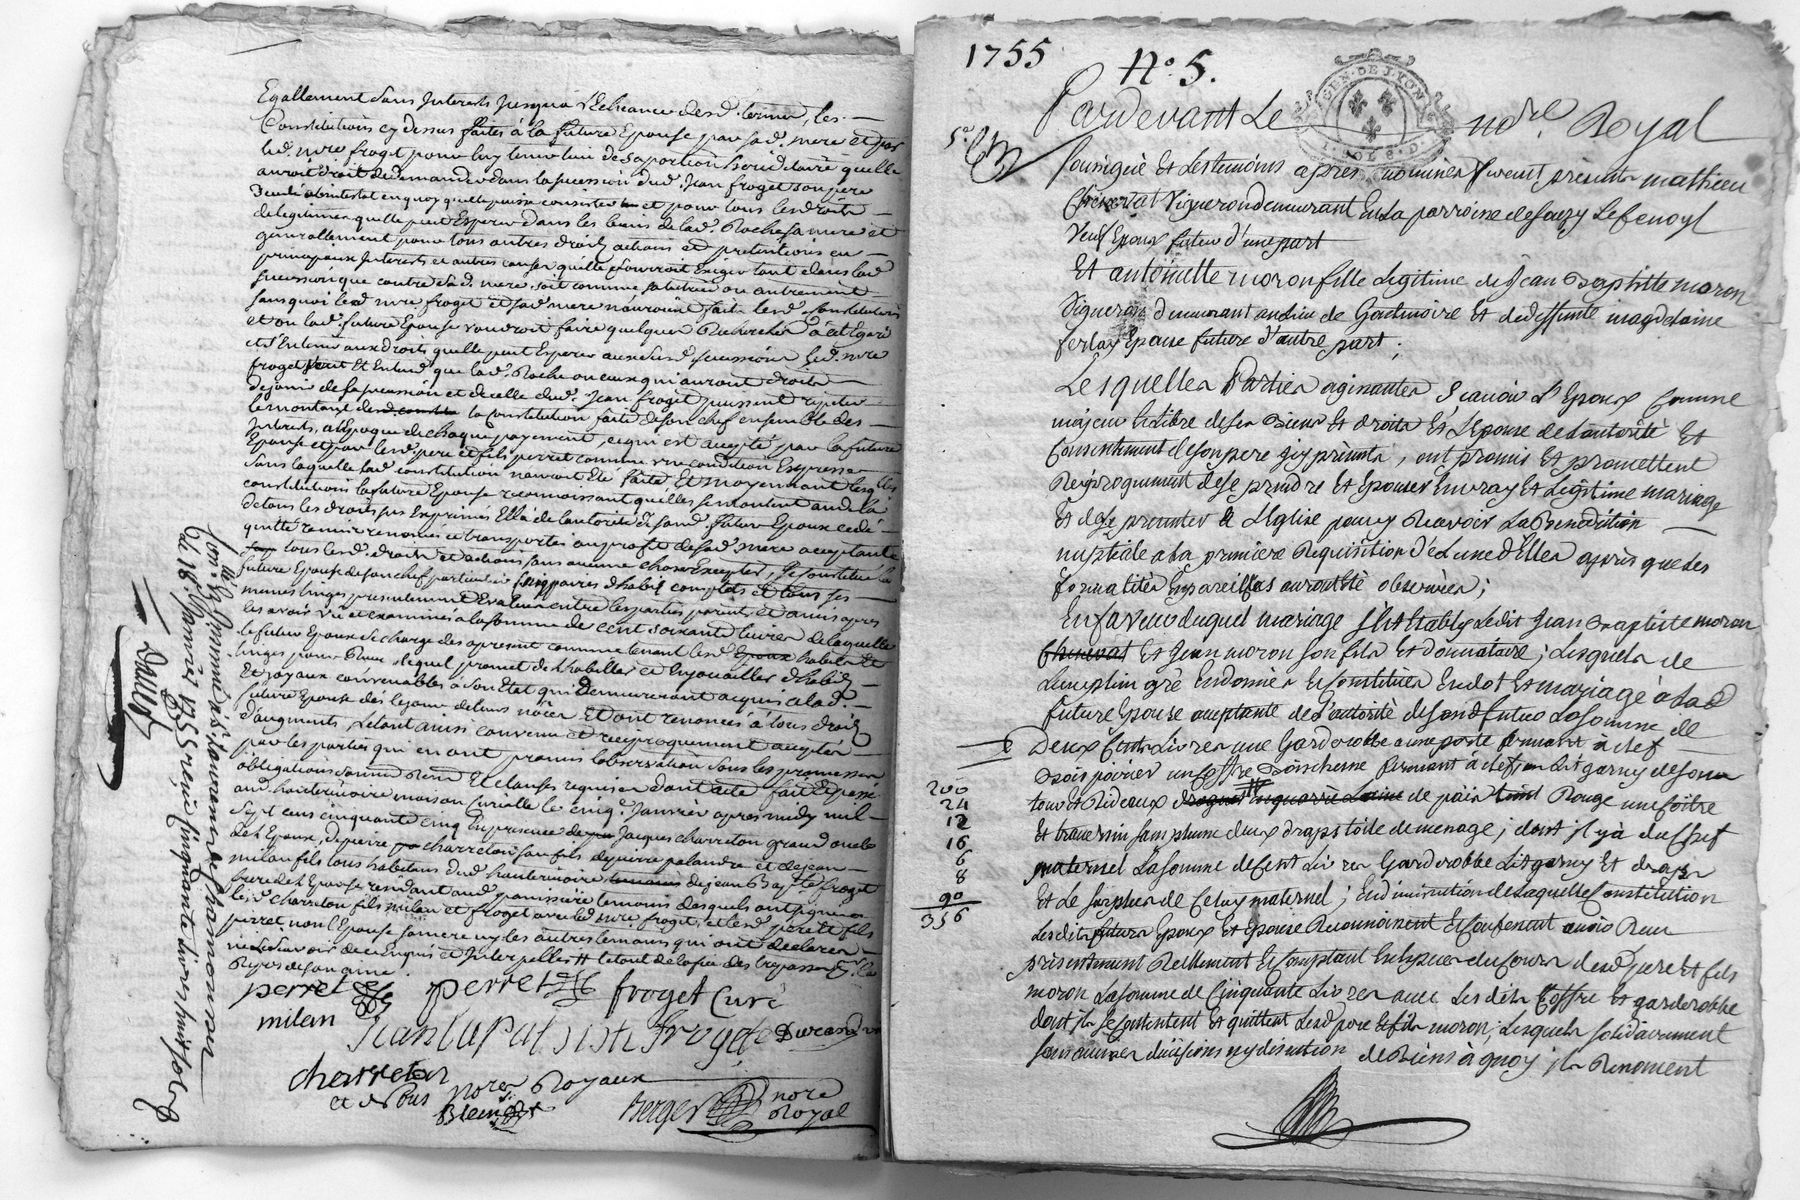 Egallement Sans Interests Jusqua l'Echeance desd. termes, les
Constitutions cy dessus faites à la future Epouse par sad. mere et par
led. mre froget pour luy tenir lieu de sa portion hereditaire quelle
auroit droit de demander dans la succession dud. Jean froget son pere
decedé abintestat en quoy quelle puisse consister et pour tous les droits
de legitime quelle peut Esperer dans les biens de lad. Roche sa mere et
generallement pour tous autres droits actions et pretentions en
principaux Interests et autres causes qu'elle pourroit Exiger tant dans lad
succession que contre sad. mere, soit comme tutrice ou autrement
sans quoi led. mre froget et sad. mere n'auroient fait lesd. constitutions
et ou lad. future Epouse voudroit faire quelques Recherches à cet Egard
et s'en tenir aux droits quelle peut Esperer auxd. successions led. mre
froget veut Et Entend que lad. Roche ou ceux qui auront droits
de jouir de sa succession et de celle dud. Jean froget puissent repeter
le montant de la Constitution faite de son chef ensemble des
Interests, a l'Epoque de chaque payement, ce qui est accepté par la future
Epouse et par lesd. pere et fils perret comme une condition Expresse
sans laquelle lad. constitution n'auroit Eté faite Et moyennant lesqlles
constitutions la future Epouse reconnoissant quelles se montent au dela
de tous les droits sus Exprimés Elle de l'autorité de sond. futur Epoux cede
quitte remet renonce et transporte au profit de sad. mere acceptante
tous lesd. droits et actions sans aucune chose Excepter, Se constitue la
future Epouse de son chef particulier cinq paires d'habits complets et tous ses
menus linges presentement Evalués entre les parties parents et amis apres
les avoir vû et examinés a la somme de cent soixante livres de laquelle
le futur Epoux se charge des apresent comme tenant lesd. habits et
linges pour Reçus, lequel promet de l'habiller et Enjouailler d'habits
Et joyaux convenables a son Etat qui demeureront acquis a lad.
future Epouse dès le jour de leurs nôces Et ont renoncés à tous droits
d'augments, Le tout ainsi convenu et reciproquement accepté
par les parties qui en ont promis l'observation sous les promesses
obligations soumes. Renon. Et clauses requises dont acte fait et passé
aud. hauterivoire maison Curialle le cinqe. Janvier apres midy mil
sept cens cinquante cinq En presence de Jacques charreton grand oncle
de l'Epouse, de pierre charreton son fils de pierre palandre et de jean
milan fils tous habitans dud. hauterivoire de jean Baptte froget
frere de l'Epouse residant aud. panissiere temoins desquels ont signés
led. charreton fils milan et froget avec led. mre froget, et lesd. pere et fils
perret non l'Epouse sa mere ny les autres temoins qui ont declarés
ne le sçavoir de ce Enquis et Interpellés
perret fils perret froget Curé
milan Jean Baptiste froget Durand
charreton
et de Nous nores Royaux
Blein berger nore
Royal
Con. & Insinué à St. laurent de chamousset
le 16. Janvier 1755 reçu cinquante livres huit sols
David
1755 No. 5.
GEN. DE LYON
1. SOL 8. D.
Pardevant Le nore. Royal
Soussigné Et Les temoins apres nommés furent presents mathieu
Chenevat Vigneron demeurant En la parroisse de Souzy Lefenoyl
Veuf Epoux futur d'une part
Et antoinette moron fille Legitime de Jean Baptiste moron
Vigneron demeurant au lieu de Goutnoire Et de deffunte magdelaine
ferlay Epouse future d'autre part;
Lesquelles Parties agissantes Sçavoir L'Epoux Comme
majeur Et Libre de ses Biens Et droits Et L'Epouse de L'autorité Et
Consentement de son pere icy present, ont promis Et promettent
Reciproquement de Se prendre Et Epouser En vray Et Legitime mariage
Et de Se presenter à L'Eglise pour y Recevoir La Benediction
nuptiale a La premiere Requisition de L'une d'Elles apres que Les
formalités En pareil Cas auront Eté observées;
En faveur duquel mariage S'est Etably Ledit Jean Baptiste moron
Chenevat Et Jean moron Son fils Et donnataire; Lesquels de
Leur plein gré En donnés Et Constitués En dot Et mariage à Lad
future Epouse acceptante de L'autorité de Sond futur La Somme de
Deux Cents Livres une Garderobbe a une porte fermant à clef
Bois poirier un Coffre Bois chesne fermant à clef, un Lit garny de Son
tour Et Rideaux de pais teint Rouge une Coitre
Et traversin Sans plume deux draps toile de menage; dont il y à du Chef
maternel La Somme de Cent Livres Garderobbe Lit garny Et draps
Et Le Surplus de Celuy maternel; En diminution de Laquelle Constitution
Lesdits futurs Epoux Et Epouse Reconnoissent Et Confessent avoir Reçu
presentement Réellement Et Comptant En Especes du Cours desd pere Et fils
moron La Somme de Cinquante Livres avec Lesdits Coffre Et garderobbe
dont ils Se Contentent Et quittent Lesd pere Et fils moron; Lesquels Solidairement
Sans aucunes divisions ny discution de Biens à quoy ils Renoncent
200
24
12
16
6
8
90
356